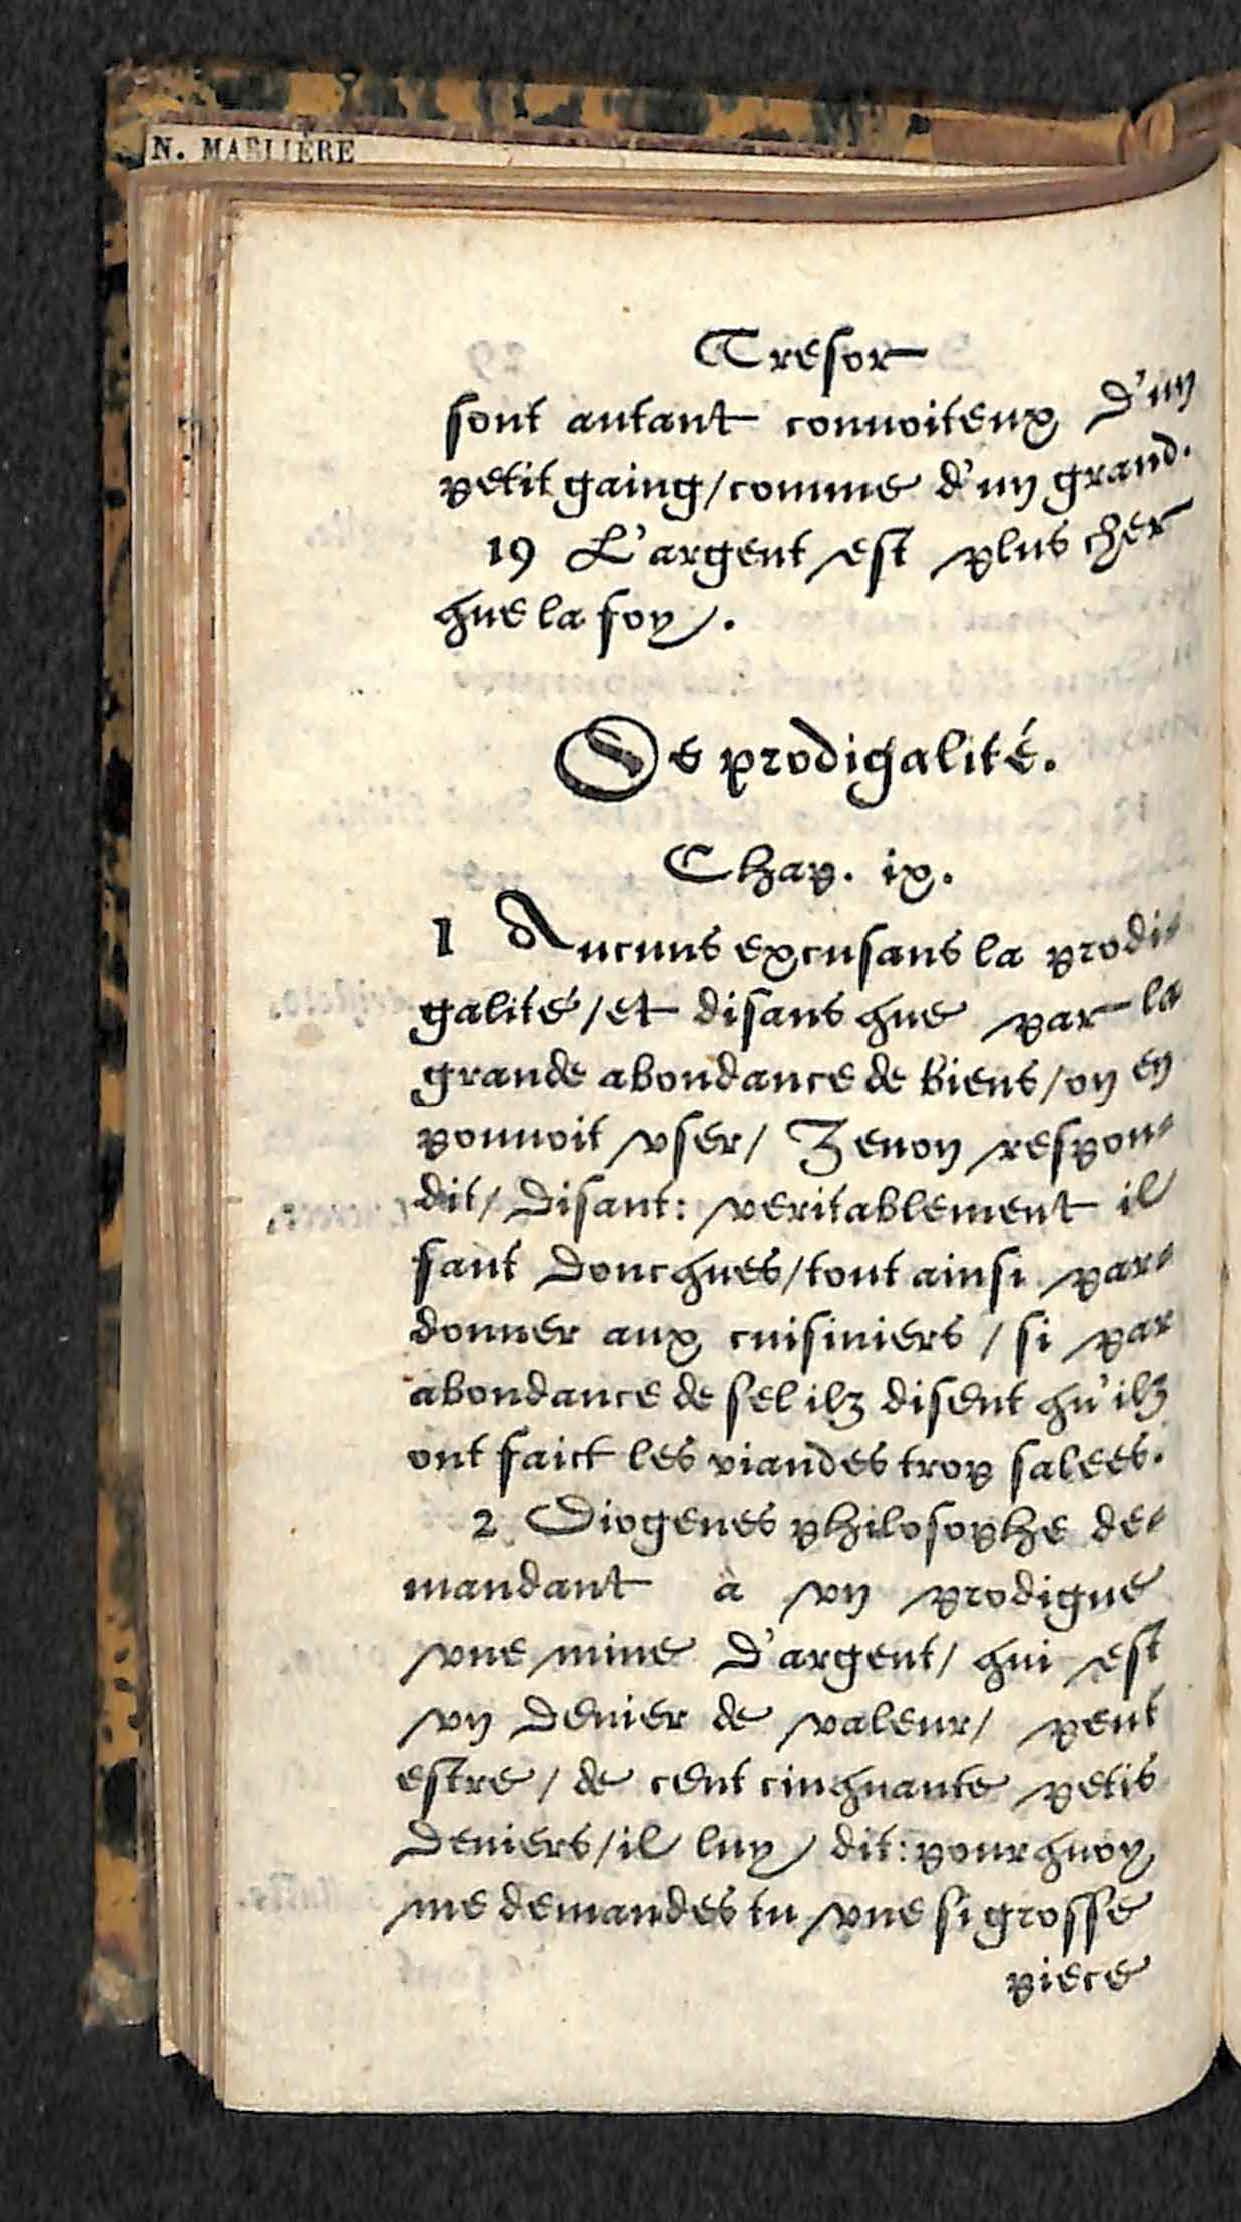 N. MARLIÈRE
Tresor
sont autant convoiteux d'un
petit gaing/comme d'un grand.
19 L'argent est plus cher
que la foy.
De prodigalité.
Chap. ix.
1 Aucuns excusans la prodi-
galité/et disans que par la
grande abondance de biens/on en
pouvoit vser/ Zenon respon-
dit/ disant: veritablement il
faut doncques/tout ainsi par-
donner aux cuisiniers / si par
abondance de sel ilz disent qu'ilz
ont faict les viandes trop salees.
2 Diogenes philosophe de-
mandant à vn prodigue
vne mine d'argent/ qui est
vn denier de valeur/ peut
estre / de cent cinquante petis
deniers/il luy dit: pourquoy
me demandes tu vne si grosse
piece